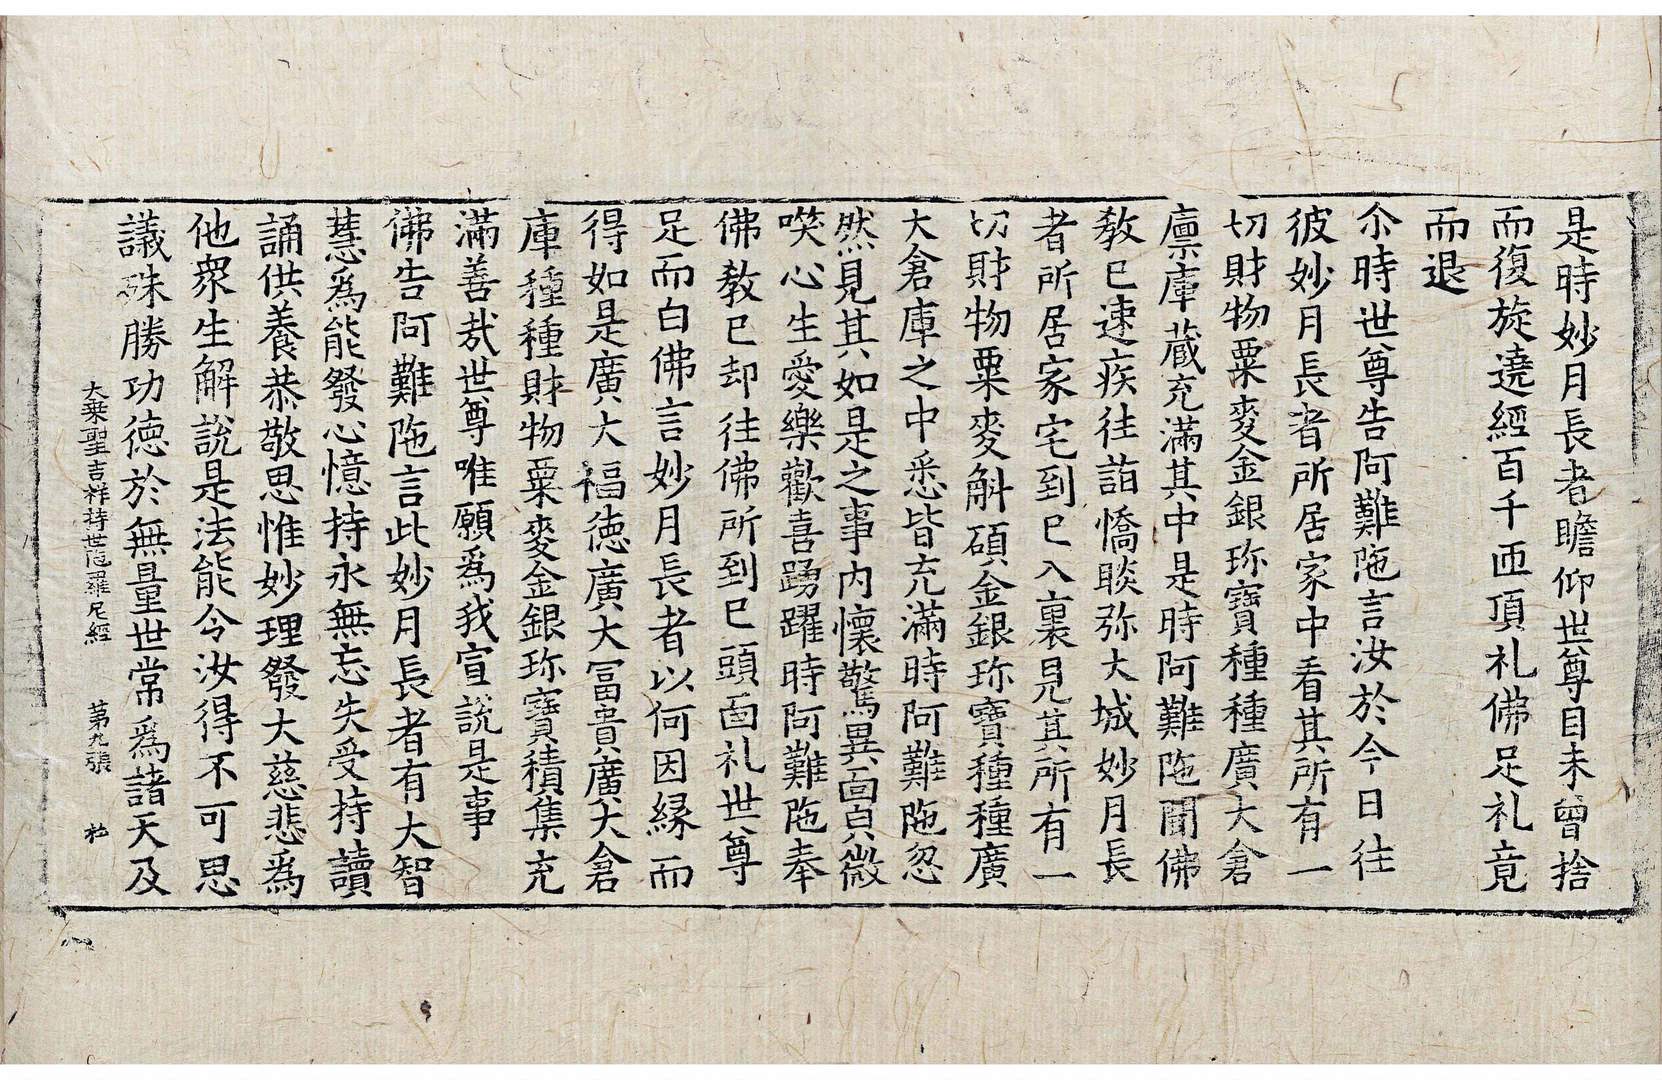 是時妙月長者瞻仰世尊目未曾捨
而復旋遶經百千匝頂礼佛足礼竟
而退
尒時世尊告阿難陁言汝於今日往
彼妙月長者所居家中看其所有一
切財物粟麥金銀珎寶種種廣大倉
廩庫蔵充滿其中是時阿難陁聞佛
教已速疾往詣憍睒弥大城妙月長
者所居家宅到已入裏見其所有一
切財物粟麥斛碩金銀珎寶種種廣
大倉庫之中悉皆充滿時阿難陁忽
然見其如是之事内懷驚異面㒵微
㗛心生愛樂歡喜踴躍時阿難陁奉
佛教已却往佛所到已頭面礼世尊
足而白佛言妙月長者以何因緣而
得如是廣大福德廣大冨貴廣大倉
庫種種財物粟麥金銀珎寶積集充
滿善㢤世尊唯願爲我宣說是事
佛告阿難陁言此妙月長者有大智
慧爲能發心憶持永無忘失受持讀
誦供養恭敬思惟妙理發大慈悲爲
他衆生解說是法能令汝得不可思
議殊勝功德於無量世常爲諸天及
大乗聖吉祥持世陁羅尼經 第九張